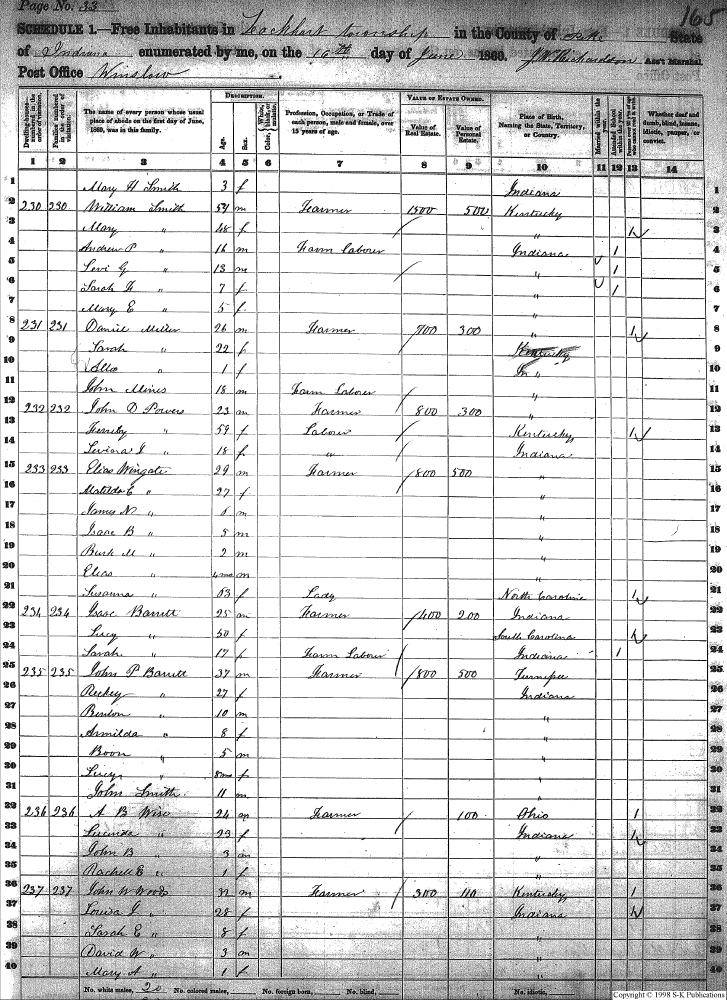 Page No. 33
165
SCHEDULE 1.—Free Inhabitants in Lockhart township in the County of Pike State
of Indiana enumerated by me, on the 16th day of June 1860. J W Richardson Ass't Marshal.
Post Office Winslow
Dwelling-houses numbered in the order of visitation.
Families numbered in the order of visitation.
The name of every person whose usual place of abode on the first day of June, 1860, was in this family.
DESCRIPTION.
Age.
Sex.
Color,
Profession, Occupation, or Trade of each person, male and female, over 15 years of age.
VALUE OF ESTATE OWNED.
Value of Real Estate.
Value of Personal Estate.
Place of Birth, Naming the State, Territory, or Country.
Married within the
Whether deaf and dumb, blind, insane, idiotic, pauper, or convict.
1 2 3 4 5 6 7 8 9 10 11 12 13 14
1 Mary H Smith 3 f Indiana 1
2 230 230 William Smith 54 m Farmer 1500 500 Kentucky 2
3 Mary " 48 f " 1 3
4 Andrew P " 16 m Farm Laborer Indiana 1 4
5 Levi G " 13 m " 1 5
6 Sarah " 7 f " 1 6
7 Mary E " 5 f " 7
8 231 231 Daniel Miller 26 m Farmer 700 300 " 1 8
9 Sarah " 22 f Kentucky 9
10 " 1 f In " 10
11 John Mines 18 m Farm Laborer " 11
12 232 232 John D Powers 23 m Farmer 800 300 " 12
13 " 59 f Laborer Kentucky 1 13
14 Levina J " 18 f " Indiana 14
15 233 233 Elias Wingate 29 m Farmer 800 500 " 15
16 Matilda E " 27 f " 16
17 James N " 6 m " 17
18 Isaac B " 5 m " 18
19 M " 2 m " 19
20 Elias " 4mo m " 20
21 Susanna " 63 f Lady North Carolina 1 21
22 234 234 Isaac Barrett 25 m Farmer 400 200 Indiana 22
23 Lucy " 50 f South Carolina 1 23
24 Sarah " 17 f Farm Labour Indiana 1 24
25 235 235 John P Barrett 37 m Farmer 800 500 Tennessee 25
26 " 27 f Indiana 26
27 Benton " 10 m " 27
28 Armilda " 8 f " 28
29 Boon " 5 m " 29
30 Lucy " 8mo f " 30
31 John Smith 11 m " 31
32 236 236 A B Wise 24 m Farmer 100 Ohio 1 32
33 Lucinda " 23 f Indiana 1 33
34 John B " 3 m " 34
35 Rachel E " 1 f " 35
36 237 237 John W Woods 32 m Farmer 300 110 Kentucky 1 36
37 Louisa J " 28 f Indiana 1 37
38 Sarah E " 8 f " 38
39 David W " 3 m " 39
40 Mary A " 1 f " 40
No. white males, 20 No. colored males, No. foreign born, No. blind, No. idiotic,
Copyright © 1998 S-K Publications